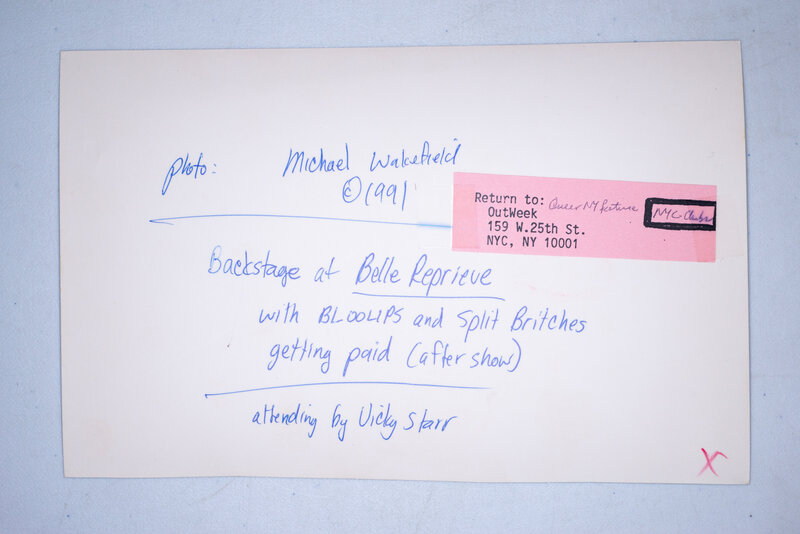 photo: Michael Wakefield
©1991
Return to: Queer NY feature
OutWeek
159 W.25th St.
NYC, NY 10001
NYC-Clubs
Backstage at Belle Reprieve
with BLOOLIPS and Split Britches
getting paid (after show)
attending by Vicky Starr
X